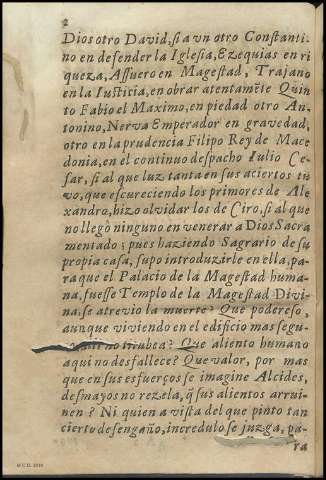 2
Dios otro David, si a vn otro Constanti-
no en defender la Iglesia, Ezequias en ri
queza, Assuero en Magestad, Trajano
en la Iusticia, en obrar atentamẽte Quin
to Fabio el Maximo, en piedad otro An-
tonino, Nerva Emperador en gravedad,
otro en la prudencia Filipo Rey de Mace
donia, en el continuo despacho Iulio Ce-
sar, si al que luz tanta en sus aciertos tu
vo, que escureciendo los primores de Ale
xandro, hizo olvidar los de Ciro, si al que
no llegò ninguno en venerar a Dios Sacra
mentado; pues haziendo Sagrario de su
propia casa, supo introduzirle en ella, pa-
ra que el Palacio de la Magestad huma-
na, fuesse Templo de la Magestad Divi-
na, se atrevio la muerte? Que poderoso,
aunque viviendo en el edificio mas segu-
no titubea? Que aliento humano
aqui no desfallece? Que valor, por mas
que en sus esfuerços se imagine Alcides,
desmayos no rezela, q̃ sus alientos arrui-
nen? Ni quien a vista del que pinto tan
cierto desengaño, incredulo se juzga, pa-
ra